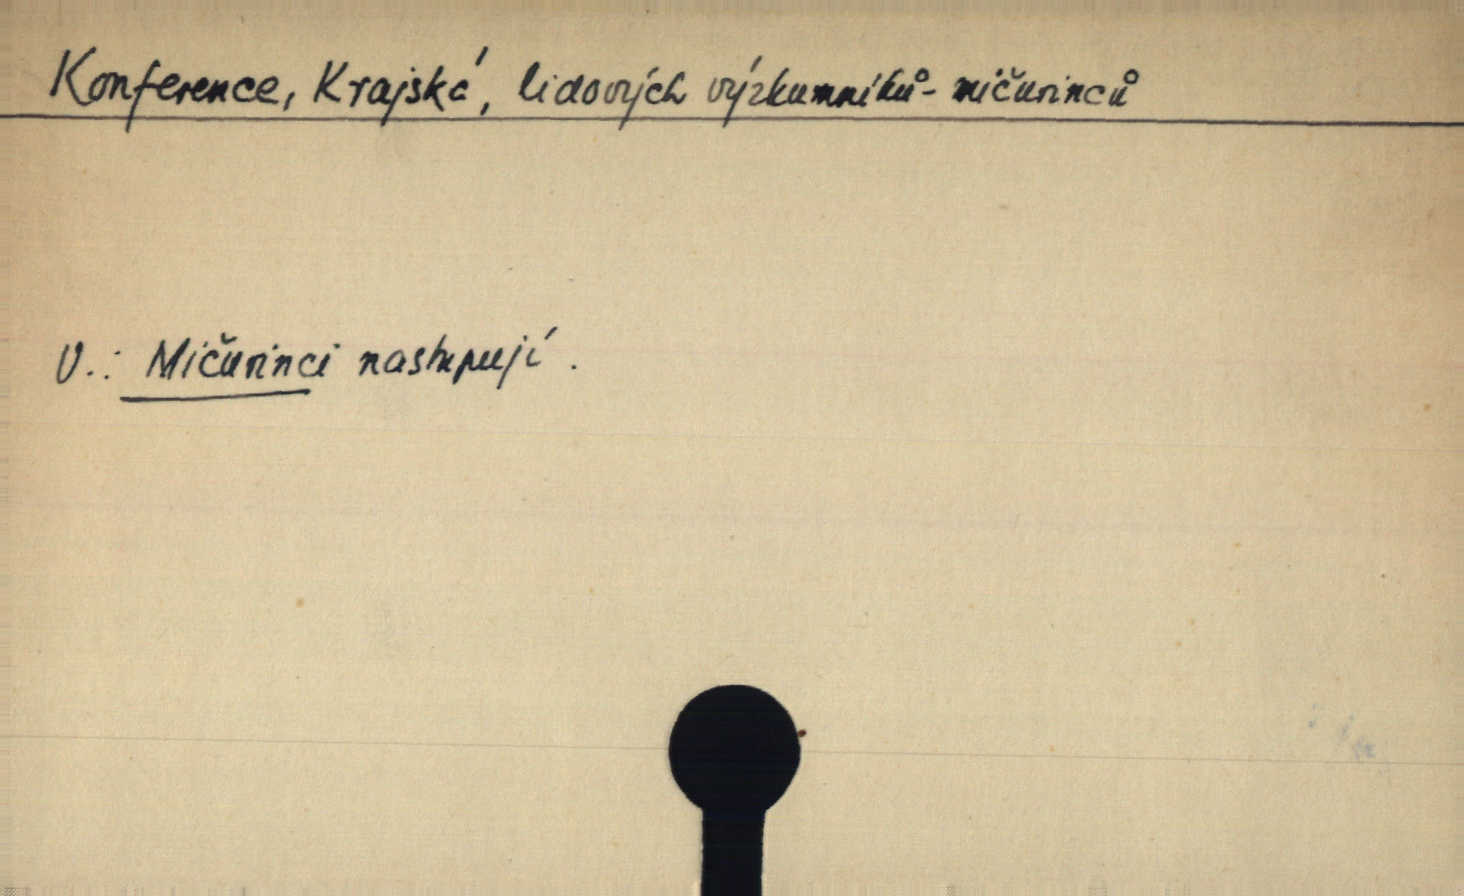 Konference, Krajská, lidových výzkumníků - mičurinců
V.: Mičurinci nastupují.